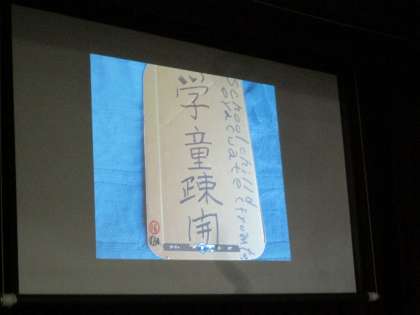 学童疎開
School child
evacuate (from